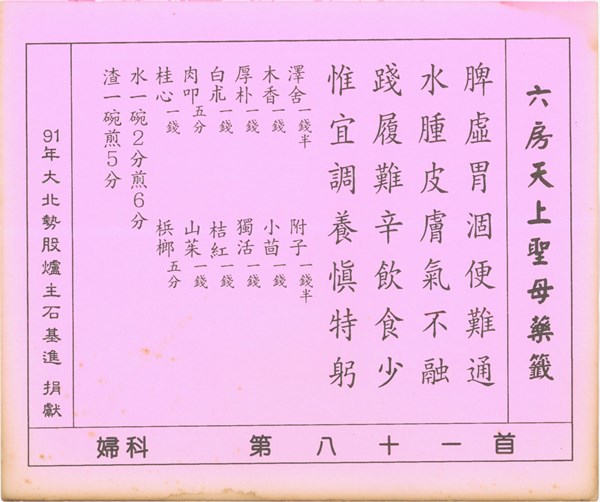 六房天上聖母藥籤
脾虛胃涸便難通
水腫皮膚氣不融
踐履難辛飲食少
惟宜調養愼特躬
澤舍一錢半 附子一錢半
木香一錢 小茴一錢
厚朴一錢 獨活一錢
白朮一錢 桔紅一錢
肉叩五分 山茱一錢
桂心一錢 梹榔五分
水一碗2分煎6分
渣一碗煎5分
91年大北勢股爐主石基進 捐獻
婦科 第八十一首